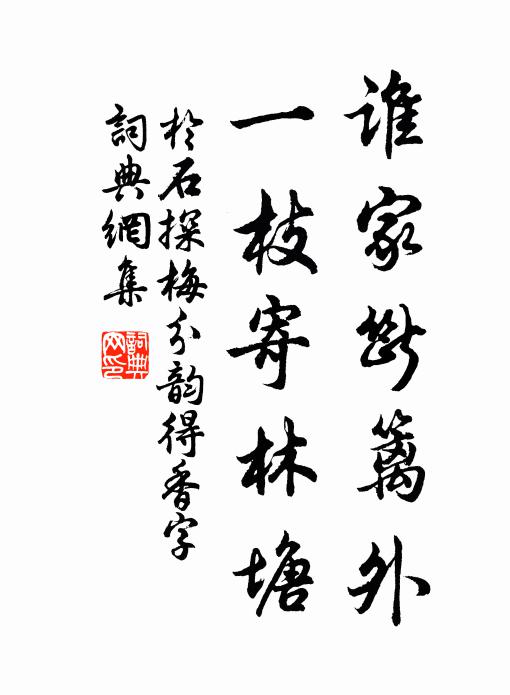 谁家斷籬外
一枝寄林塘
於石探梅分韵得香字
詞典網集
詞典網印